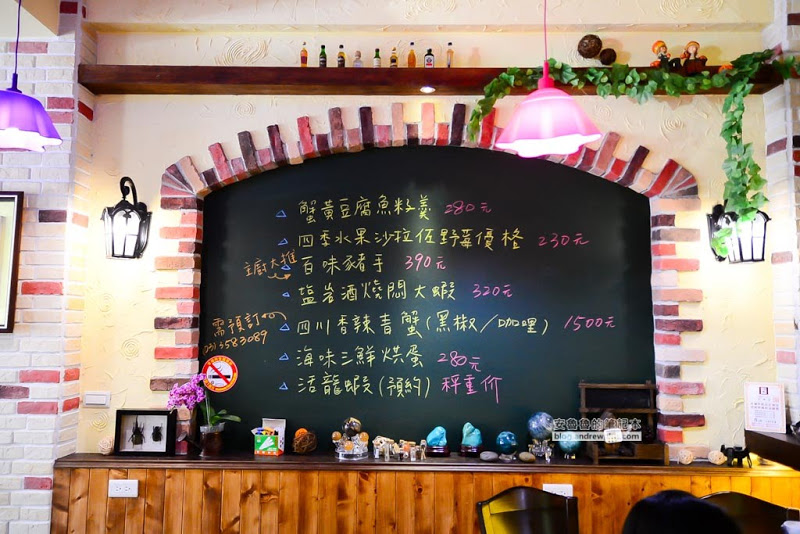 蟹黃豆腐魚籽羹 280元
四季水果沙拉佐野莓優格 230元
主廚大推
百味豬手 390元
塩岩酒燒悶大蝦 320元
需預訂
(03)3583089
四川香辣青蟹(黑椒/咖哩) 1500元
海味三鮮烘蛋 280元
活龍蝦(預約) 秤重价
安魯魯的
blog.andrew